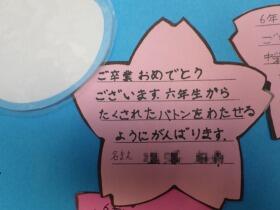 ご卒業おめでとう
ございます。六年生から
たくされたバトンをわたせる
ようにがんばります。
名まえ
6年